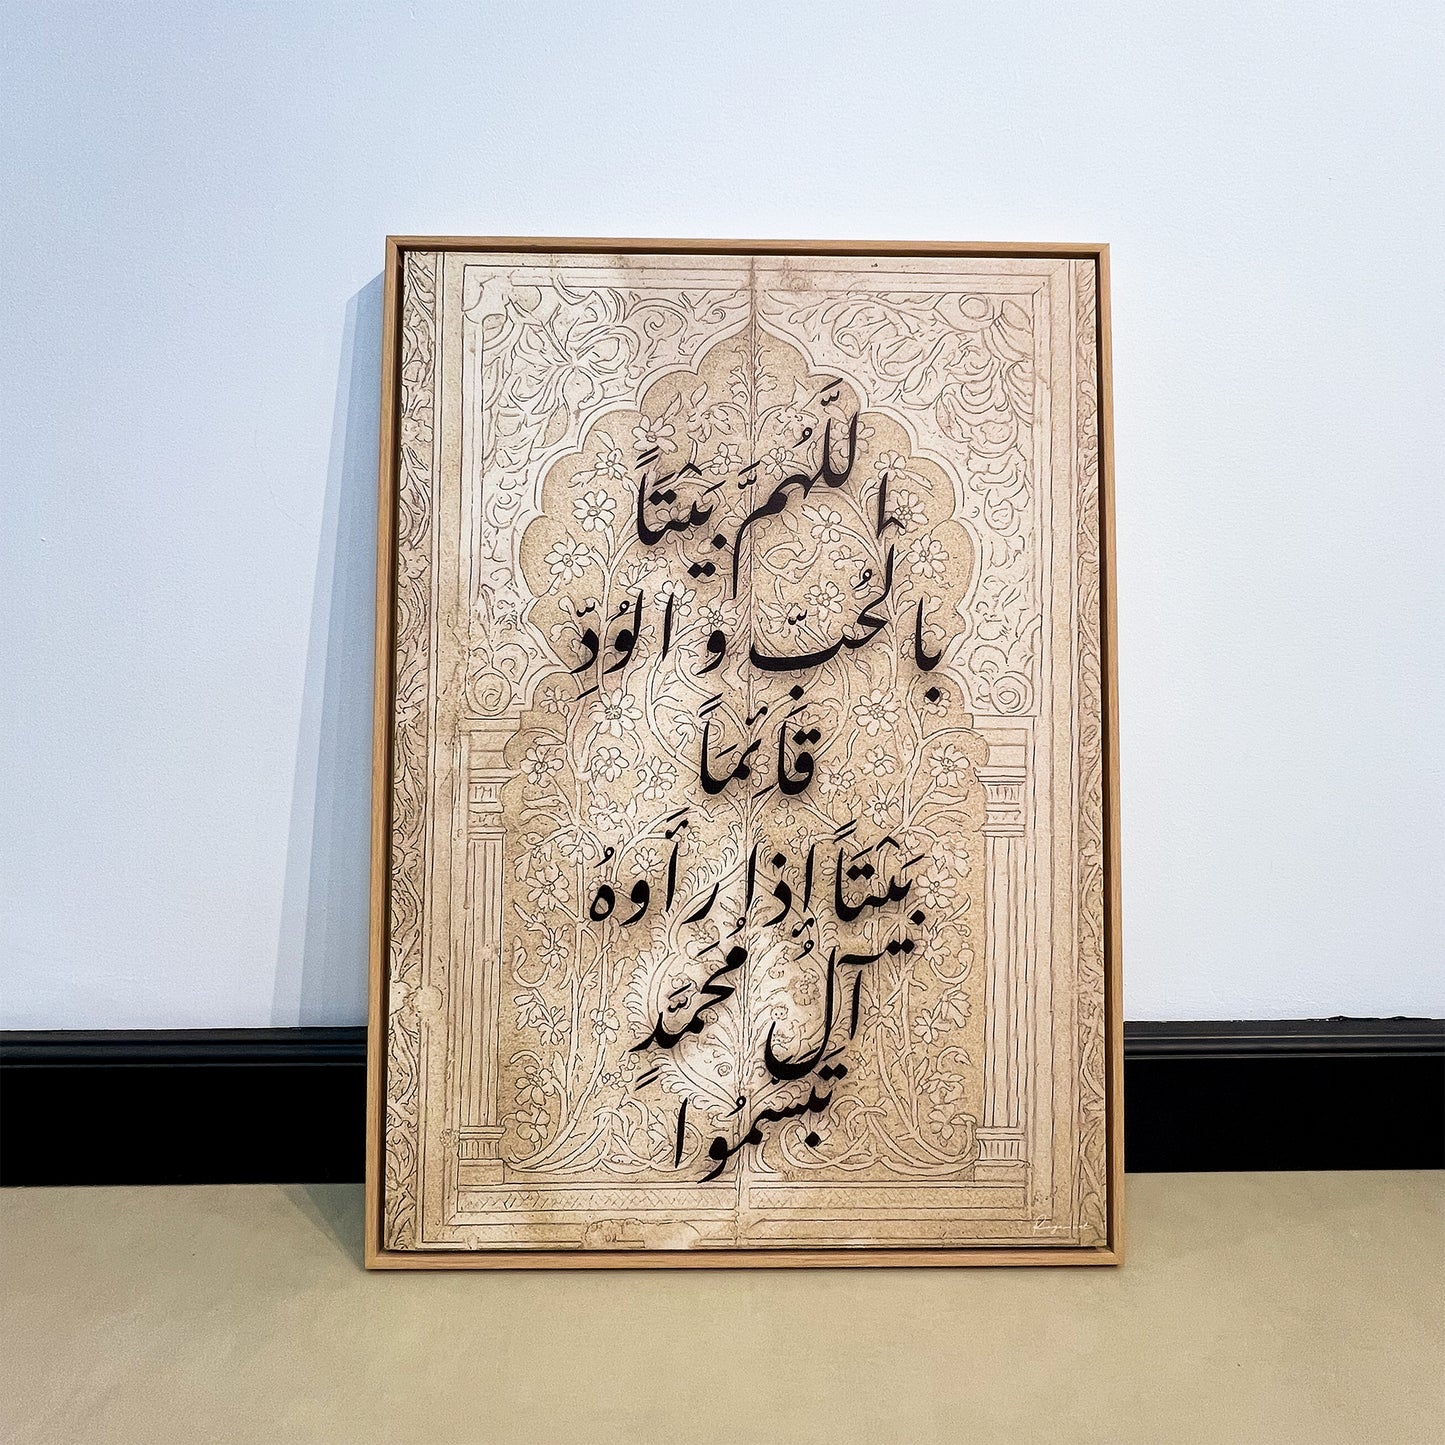 اللَّهُمَّ بَيْتَاً
بالْحُبّ و الوُدِّ
قَائِمَاً
بَيْتَاً إذا رأَوهُ
آلُ مُحَمَّدٍ
تبسمُوا